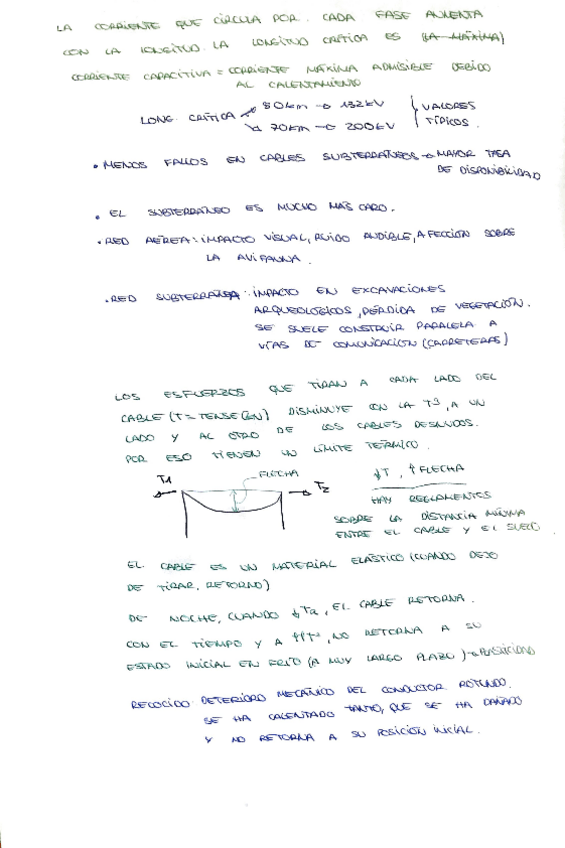 LA CORRIENTE QUE CIRCULA POR CADA FASE AUMENTA
CON LA LONGITUD. LA LONGITUD CRÍTICA ES (LA MÁXIMA)
CORRIENTE CAPACITIVA = CORRIENTE MÁXIMA ADMISIBLE DEBIDO
AL CALENTAMIENTO
LONG. CRÍTICA
80km → 132kV
70km → 200kV
VALORES
TÍPICOS.
• MENOS FALLOS EN CABLES SUBTERRÁNEOS → MAYOR TASA
DE DISPONIBILIDAD
• EL SUBTERRÁNEO ES MUCHO MÁS CARO.
• RED AÉREA: IMPACTO VISUAL, RUIDO AUDIBLE, AFECCIÓN SOBRE
LA AVIFAUNA.
• RED SUBTERRÁNEA: IMPACTO EN EXCAVACIONES
ARQUEOLÓGICOS, PÉRDIDA DE VEGETACIÓN.
SE SUELE CONSTRUIR PARALELA A
VÍAS DE COMUNICACIÓN (CARRETERAS)
LOS ESFUERZOS QUE TIRAN A CADA LADO DEL
CABLE (T = TENSIÓN) DISMINUYE CON LA Tª, A UN
LADO Y AL OTRO DE LOS CABLES DESNUDOS.
POR ESO TIENEN UN LÍMITE TÉRMICO.
T1
FLECHA
T2
↓T, ↑FLECHA
HAY REGLAMENTOS
SOBRE LA DISTANCIA MÍNIMA
ENTRE EL CABLE Y EL SUELO
EL CABLE ES UN MATERIAL ELÁSTICO (CUANDO DEJO
DE TIRAR, RETORNO)
DE NOCHE, CUANDO ↓Ta, EL CABLE RETORNA.
CON EL TIEMPO Y A ↑↑Tª, NO RETORNA A SU
ESTADO INICIAL EN FRÍO (A MUY LARGO PLAZO) →
RECOCIDO: DETERIORO MECÁNICO DEL CONDUCTOR ROTUNDO.
SE HA CALENTADO TANTO, QUE SE HA DAÑADO
Y NO RETORNA A SU POSICIÓN INICIAL.